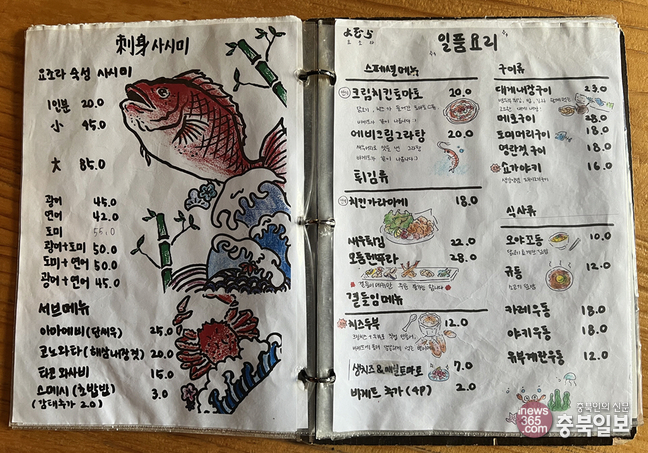 刺身 사시미
요츠라 숙성 사시미
1인분 20.0
小 45.0
大 85.0
광어 45.0
연어 42.0
도미 55.0
광어+도미 50.0
도미+연어 50.0
광어+연어 45.0
서브메뉴
아마에비 (단새우) 25.0
코노와타 (해삼내장젓) 20.0
타코와사비 15.0
스메시 (초밥밥) 3.0
(감태추가 2.0)
일품요리
스페셜메뉴
크림치킨토마토 20.0
에비크림그라탕 20.0
튀김류
치킨가라아게 18.0
새우튀김 22.0
모듬텐뿌라 28.0
곁들임메뉴
치즈두부 12.0
생치즈&매실토마토 7.0
바게트 추가 (4P) 2.0
구이류
대게내장구이 23.0
메로구이 28.0
도미머리구이 18.0
명란젓구이 18.0
요가야키 16.0
식사류
오야꼬동 10.0
규동 12.0
카레우동 18.0
야키우동 18.0
유부계란우동 12.0
inews365.com
충북인의 신문
충북일보